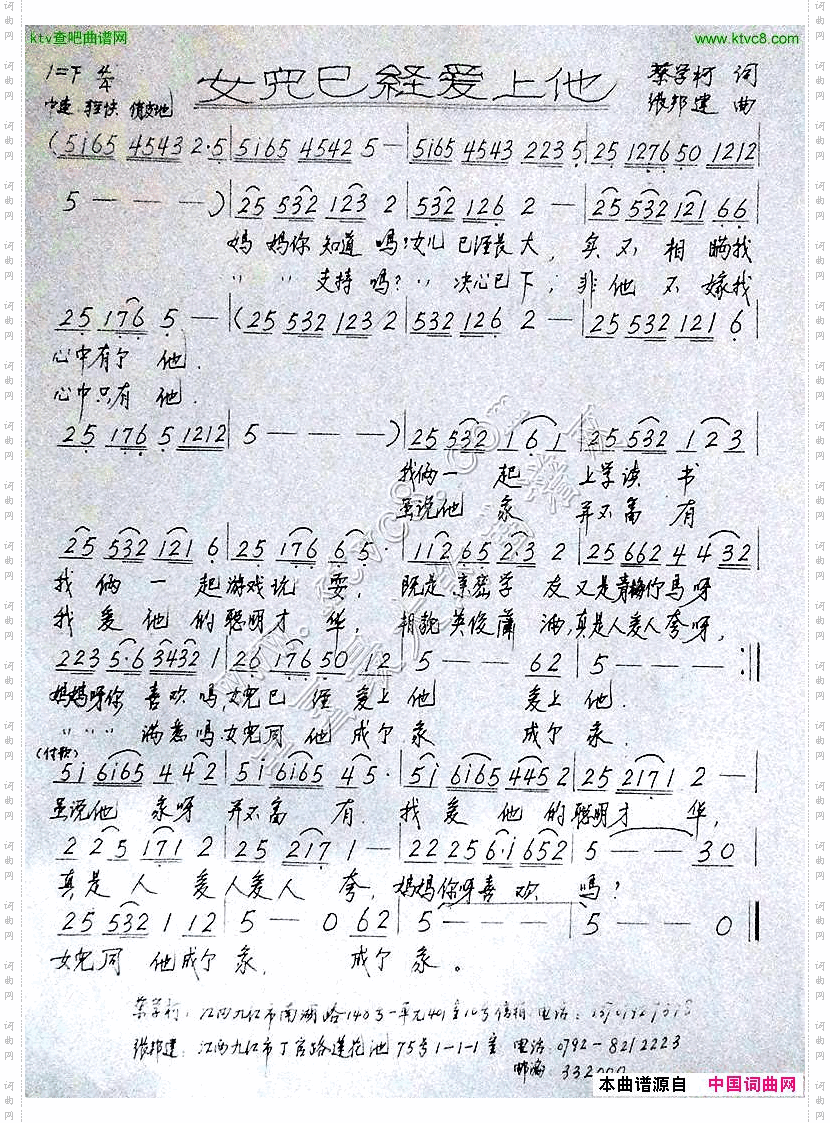 ktv查吧曲谱网 www.ktvc8.com
女儿已経爱上他
1=F 4/4
蔡学柯 词
中速 轻快 俏皮地
张邦建 曲
(5i65 4543 2·5 | 5i65 4542 5 — | 5i65 4543 223 5 | 25 1276 50 1212
5 — — — ) | 25 532 123 2 | 532 126 2 — | 25 532 121 66
妈妈你知道吗?女儿已经长大, 实不相瞒我
〃 〃 支持吗?〃 决心已下, 非他不嫁我
25 176 5 — | (25 532 123 2 | 532 126 2 — | 25 532 121 6
心中有了他.
心中只有他.
25 176 5 1212 | 5 — — — ) | 25 532 1 6 1 | 25 532 1 2 3
我俩一起 上学读书
虽说他家 并不富有
25 532 121 6 | 25 176 6 5· | 112 65 2·3 2 | 25 662 4 4 32
我俩一起游戏玩耍, 既是亲密学友又是青梅竹马呀
我爱他的聪明才华, 相貌英俊潇洒,真是人爱人夸呀,
223 5·6 3432 1 | 26 176 50 12 | 5 — — 62 | 5 — — — :‖
妈妈呀你喜欢吗,女儿已经爱上他 爱上他.
〃 〃 〃 满意吗,女儿同他成了家 成了家.
(付歌)
5i 6i65 4 42 | 5i 6i65 4 5· | 5i 6i65 4452 | 25 2171 2 —
虽说他家呀 并不富有. 我爱他的聪明才华,
2 25 171 2 | 25 217 1 — | 22 256·i 652 | 5 — — 30
真是人爱人爱人夸, 妈妈你呀喜欢吗?
25 532 1 12 | 5 — 0 62 | 5 — — — | 5 — — 0 ‖
女儿同他成了家, 成了家。
蔡学柯: 江西九江市南湖路140号一单元401室10号信箱 电话:
张邦建: 江西九江市丁官路莲花池75号1-1-1室 电话:0792-8212223
邮编: 332000
本曲谱源自 中国词曲网
词曲网